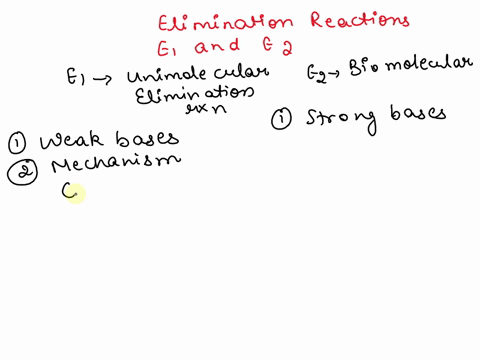 Elimination Reactions
E1 and E2
E1 → Unimolecular
Elimination
rxn
E2 → Biomolecular
① Weak bases
② Mechanism
C
① Strong bases